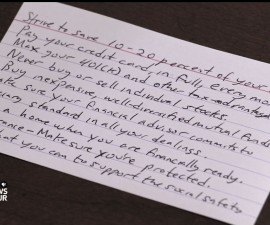 Strive to save 10-20 percent of your
Pay your credit card in full every mon
Max your 401(k) and other tax-advantaged
Never buy or sell individual stocks.
Buy inexpensive, well-diversified mutual fund
ake sure your financial advisor commits to
iary standard in all your dealings.
a home when you are financially ready.
rance - Make sure you're protected.
hat you can to support the social safety
WS
UR